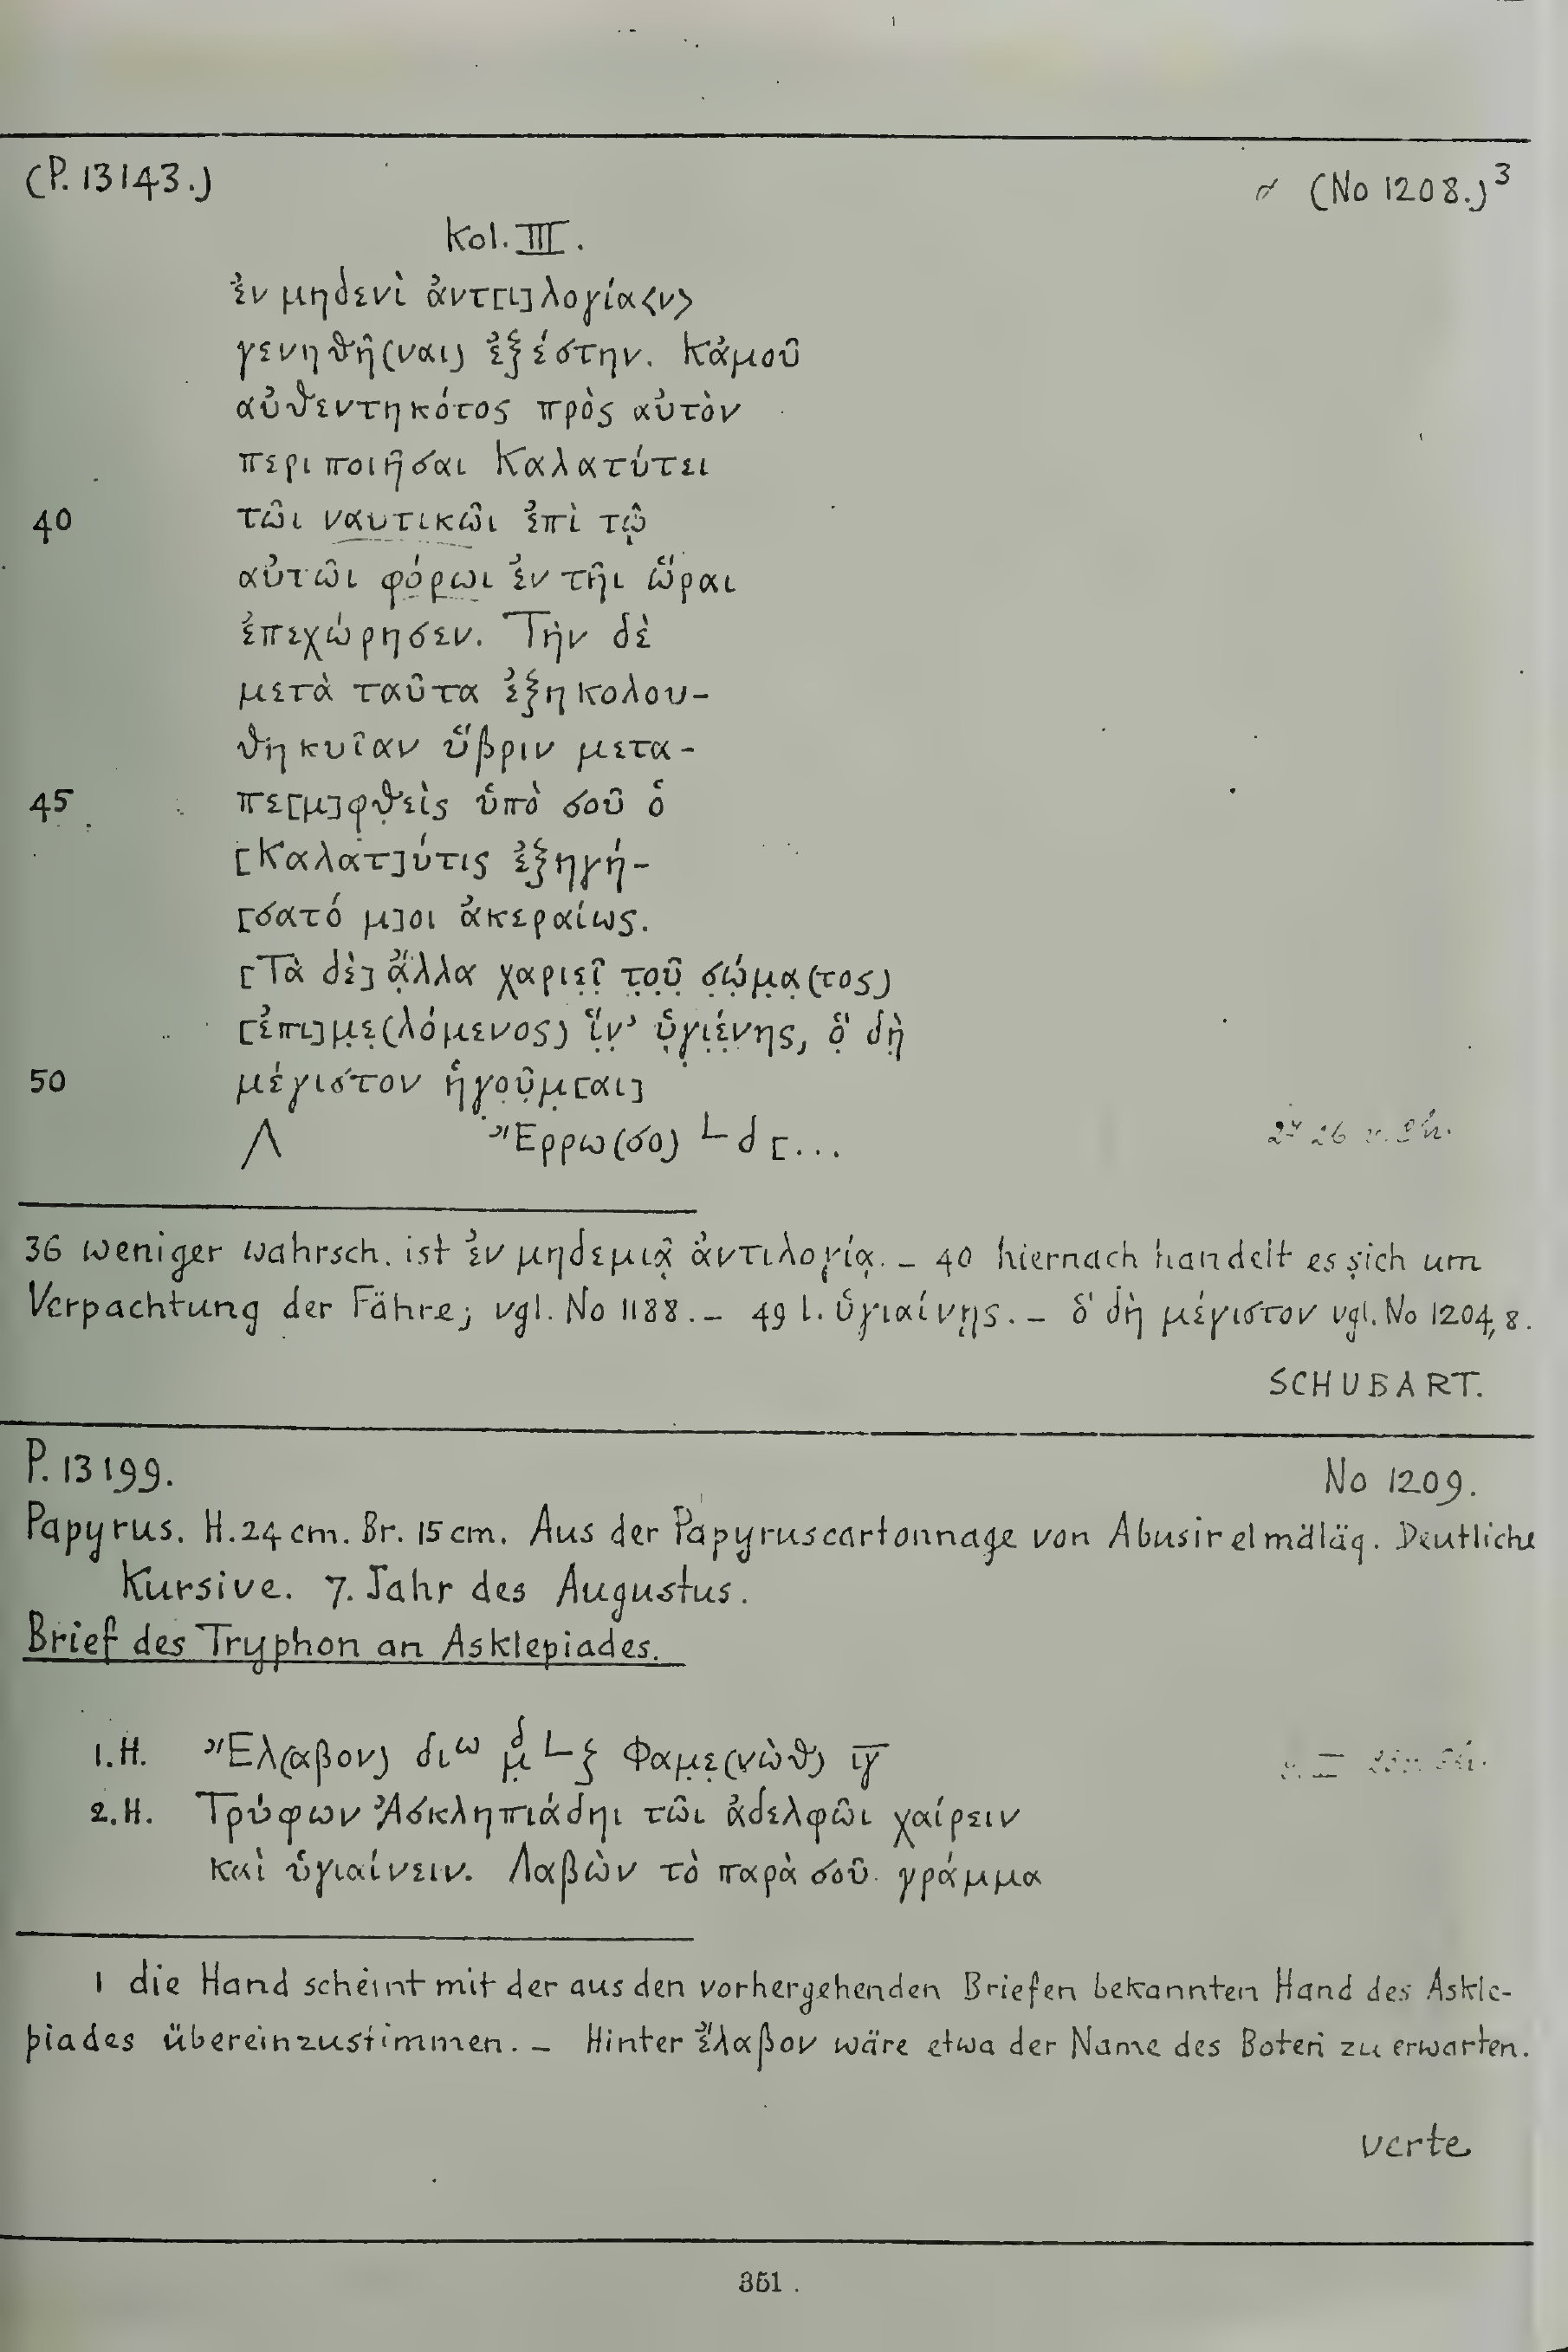 (P. 13143.) (No 1208.)³
Kol. III.
ἐν μηδενὶ ἀντ[ι]λογία<ν>
γενηθῆ(ναι) ἐξέστην. Κἀμοῦ
αὐθεντηκότος πρὸς αὐτὸν
περιποιῆσαι Καλατύτει
40 τῶι ναυτικῶι ἐπὶ τῷ
αὐτῶι φόρωι ἐν τῆι ὥραι
ἐπεχώρησεν. Τὴν δὲ
μετὰ ταῦτα ἐξηκολου-
θηκυῖαν ὕβριν μετα-
45 πε[μ]φ̣θεὶς ὑπὸ σοῦ ὁ
[Καλατ]ύτις ἐξηγή-
[σατό μ]οι ἀκεραίως.
[Τὰ δὲ] ἄ̣λλα χαριε̣ῖ̣ τ̣ο̣ῦ̣ σ̣ώ̣μ̣α̣(τος)
[ἐπι]μ̣ε̣(λόμενος) ἵ̣ν̣’ ὑ̣γ̣ι̣έ̣νης, ὃ̣ δὴ̣
50 μέγιστον ἡγ̣ο̣ῦ̣μ̣[αι]
Λ Ἔρρω(σο) L δ [...
36 weniger wahrsch. ist ἐν μηδεμιᾷ ἀντιλογίᾳ. – 40 hiernach handelt es sich um
Verpachtung der Fähre; vgl. No 1188. – 49 l. ὑγιαίνῃς. – ὃ δὴ μέγιστον vgl. No 1204, 8.
SCHUBART.
P. 13199. No 1209.
Papyrus. H. 24 cm. Br. 15 cm. Aus der Papyruscartonnage von Abusir el mäläq. Deutliche
Kursive. 7. Jahr des Augustus.
Brief des Tryphon an Asklepiades.
1. H. Ἔλ(αβον) διω μ̣δ L ζ Φαμ̣ε̣(νὼθ) ιγ
2. H. Τρύφων Ἀσκληπιάδηι τῶι ἀδελφῶι χαίρειν
καὶ ὑγιαίνειν. Λαβὼν τὸ παρὰ σοῦ γράμμα
1 die Hand scheint mit der aus den vorhergehenden Briefen bekannten Hand des Askle-
piades übereinzustimmen. – Hinter ἔλαβον wäre etwa der Name des Boten zu erwarten.
verte
351.